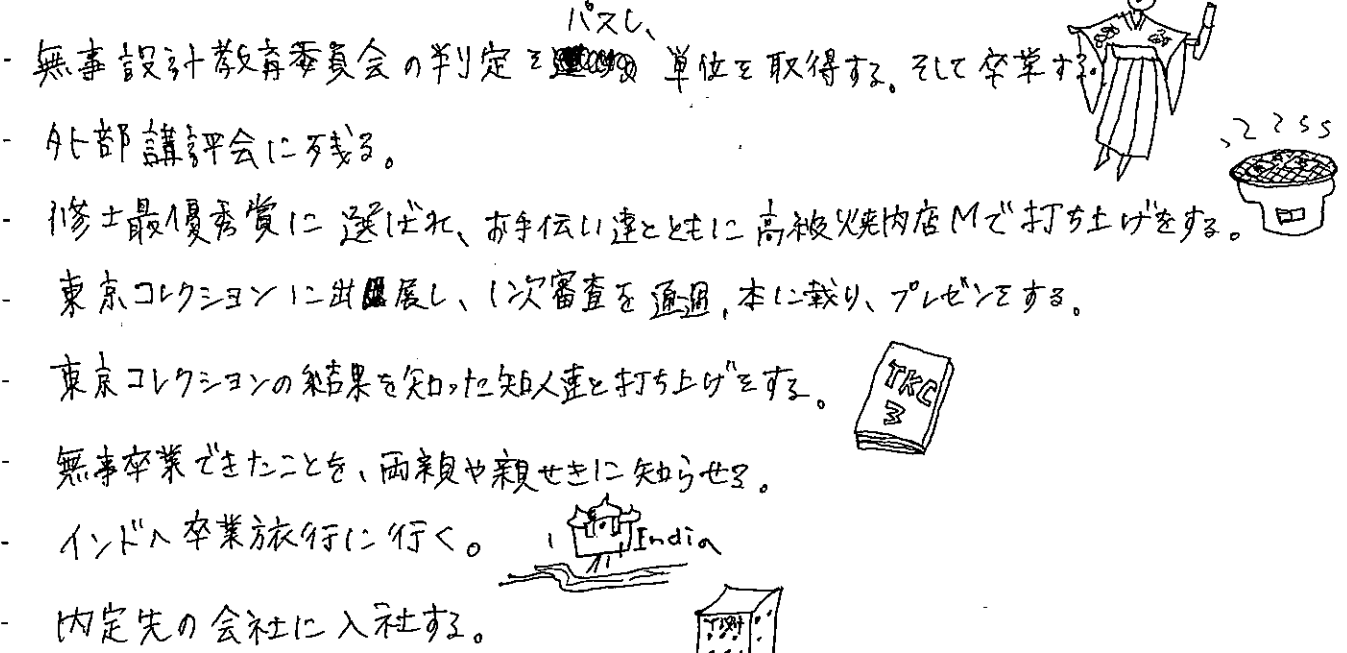 - 無事設計教育委員会の判定をパスし、単位を取得する。そして卒業する。
- 外部講評会に残る。
- 修士最優秀賞に選ばれ、お手伝い達とともに高級焼肉店Mで打ち上げをする。
- 東京コレクションに出展し、1次審査を通過,本に載り、プレゼンをする。
- 東京コレクションの結果を知った知人達と打ち上げをする。
TKC
3
- 無事卒業できたことを、両親や親せきに知らせる。
- インドへ卒業旅行に行く。
India
- 内定先の会社に入社する。